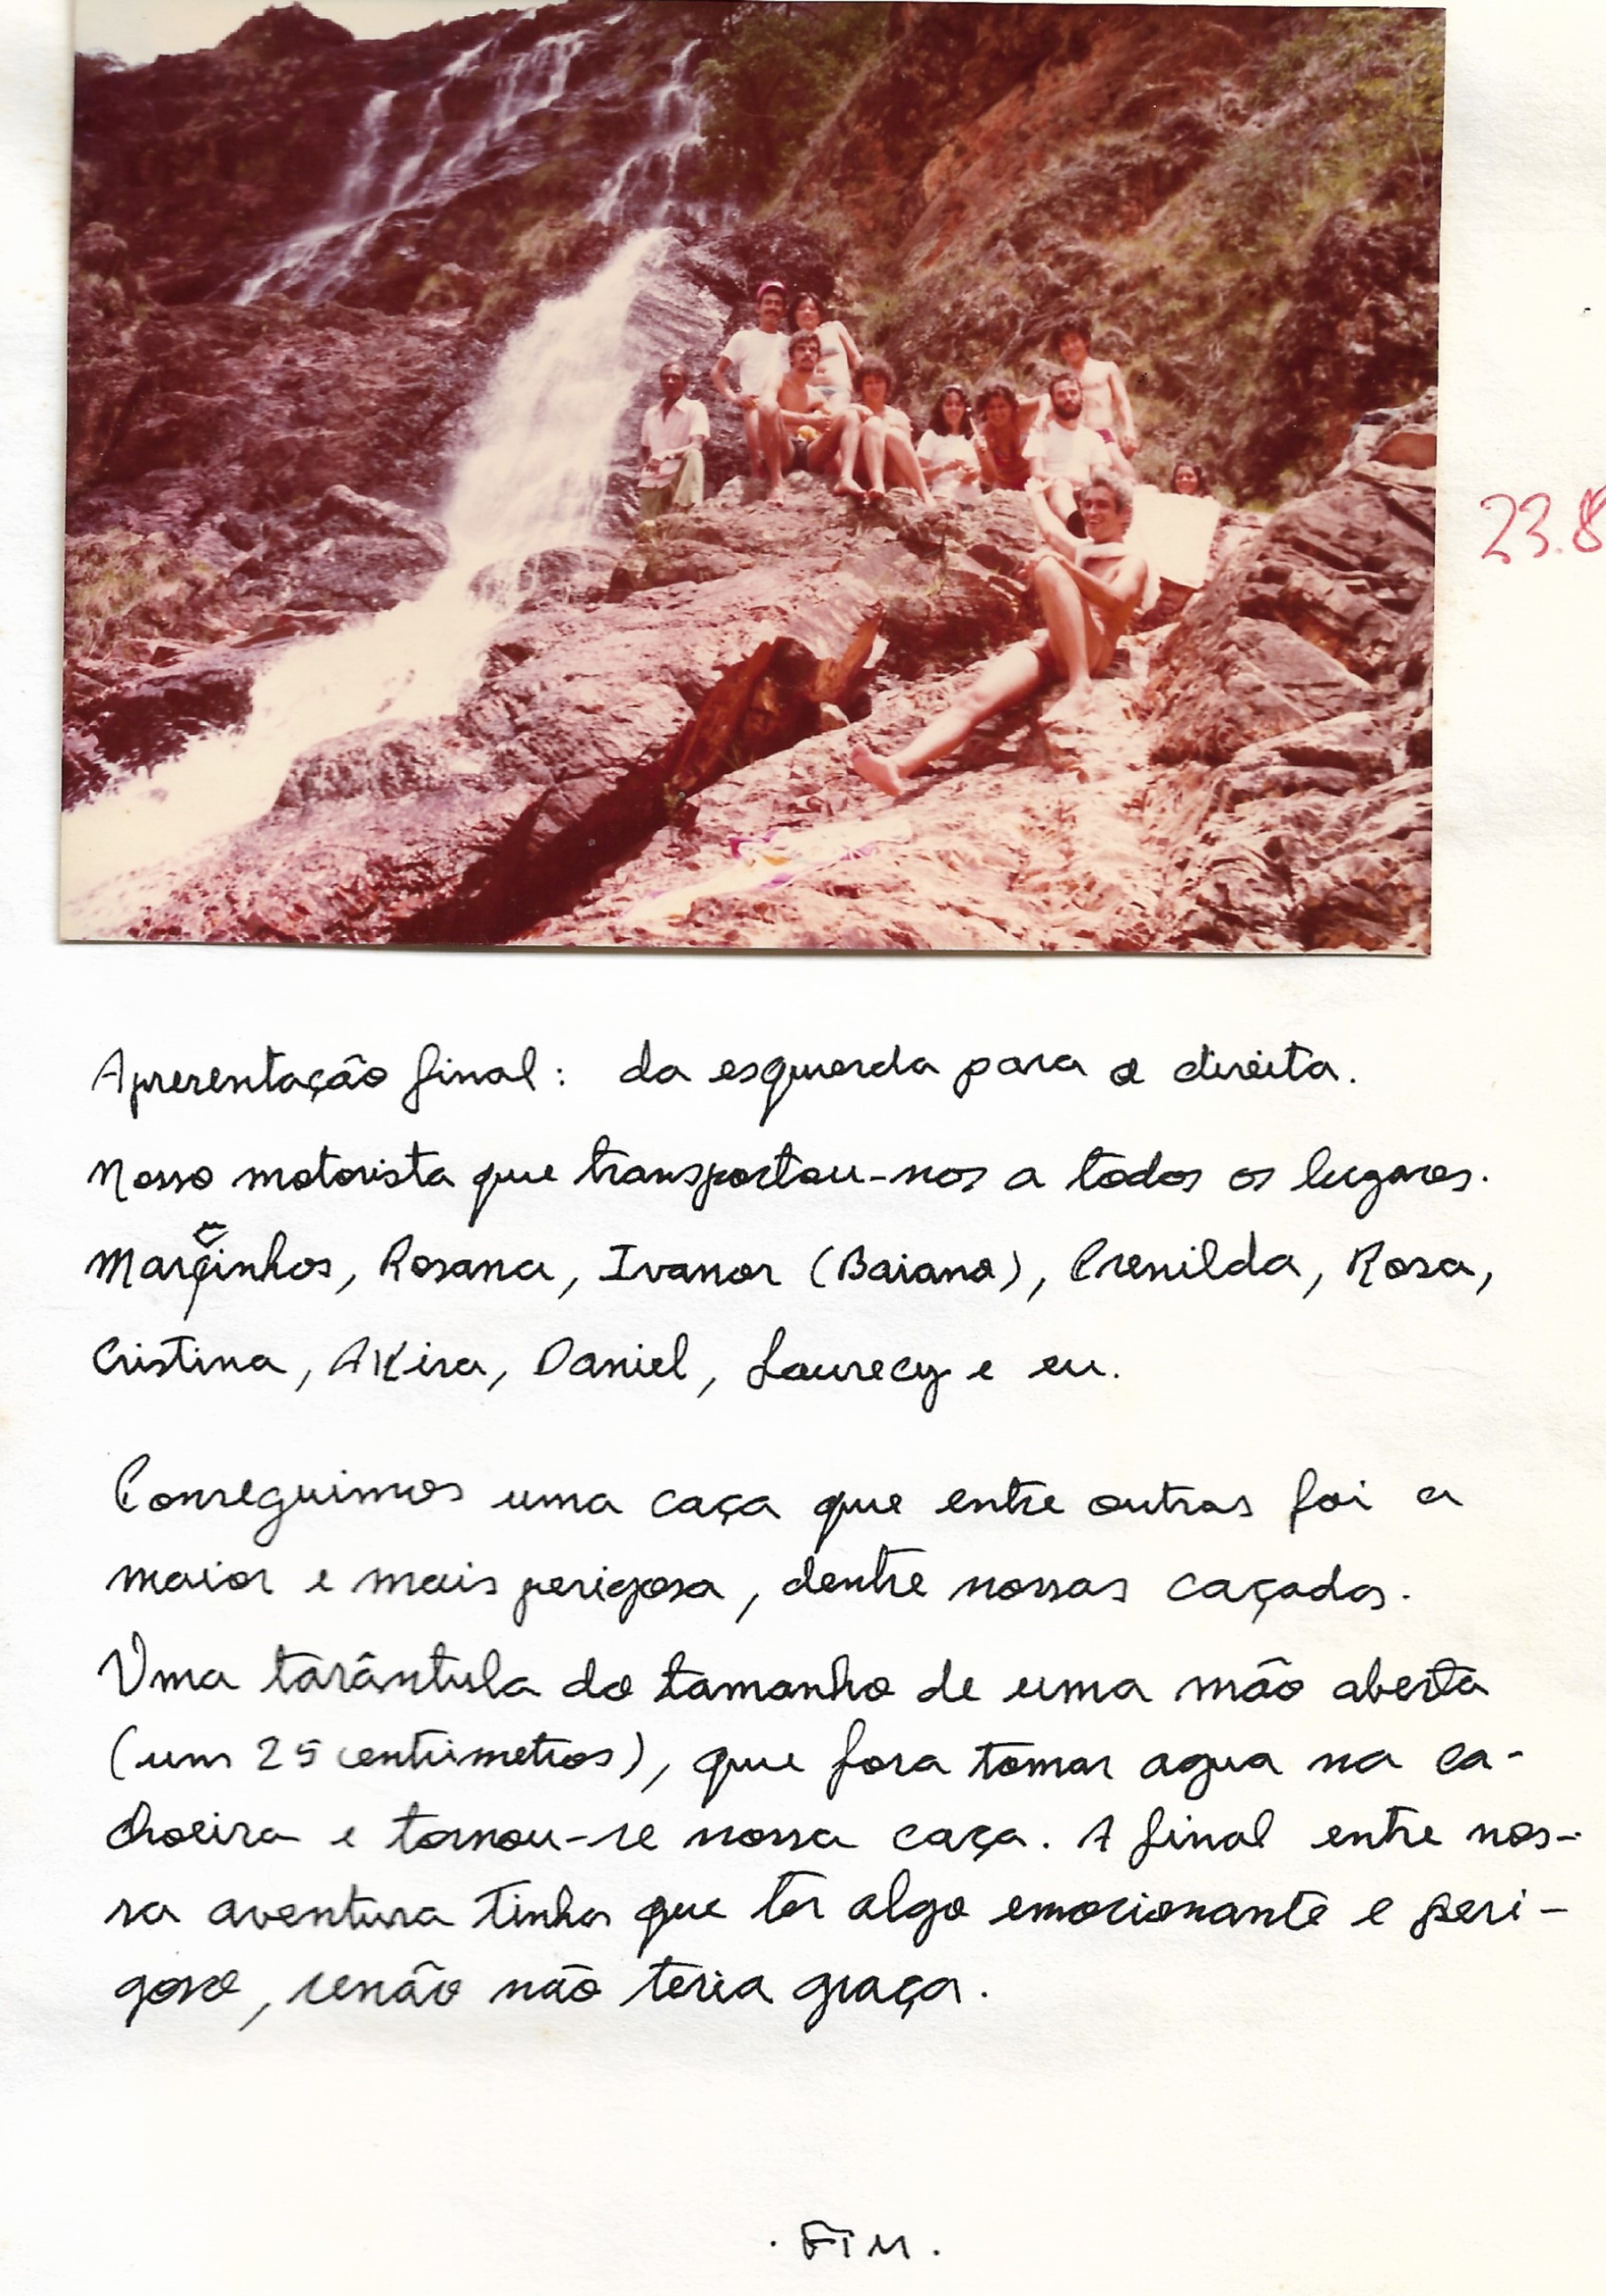 23.8
Apresentação final: da esquerda para a direita.
Nosso motorista que transportou-nos a todos os lugares.
Marquinhos, Rosana, Ivanor (Baiano), Crenilda, Rosa,
Cristina, Akira, Daniel, Laurecy e eu.
Conseguimos uma caça que entre outras foi a
maior e mais perigosa, dentre nossas caçadas.
Uma tarântula do tamanho de uma mão aberta
(uns 25 centimetros), que fora tomar agua na ca-
choeira e tornou-se nossa caça. A final entre nos-
sa aventura tinha que ter algo emocionante e peri-
goso, senão não teria graça.
. FIM .